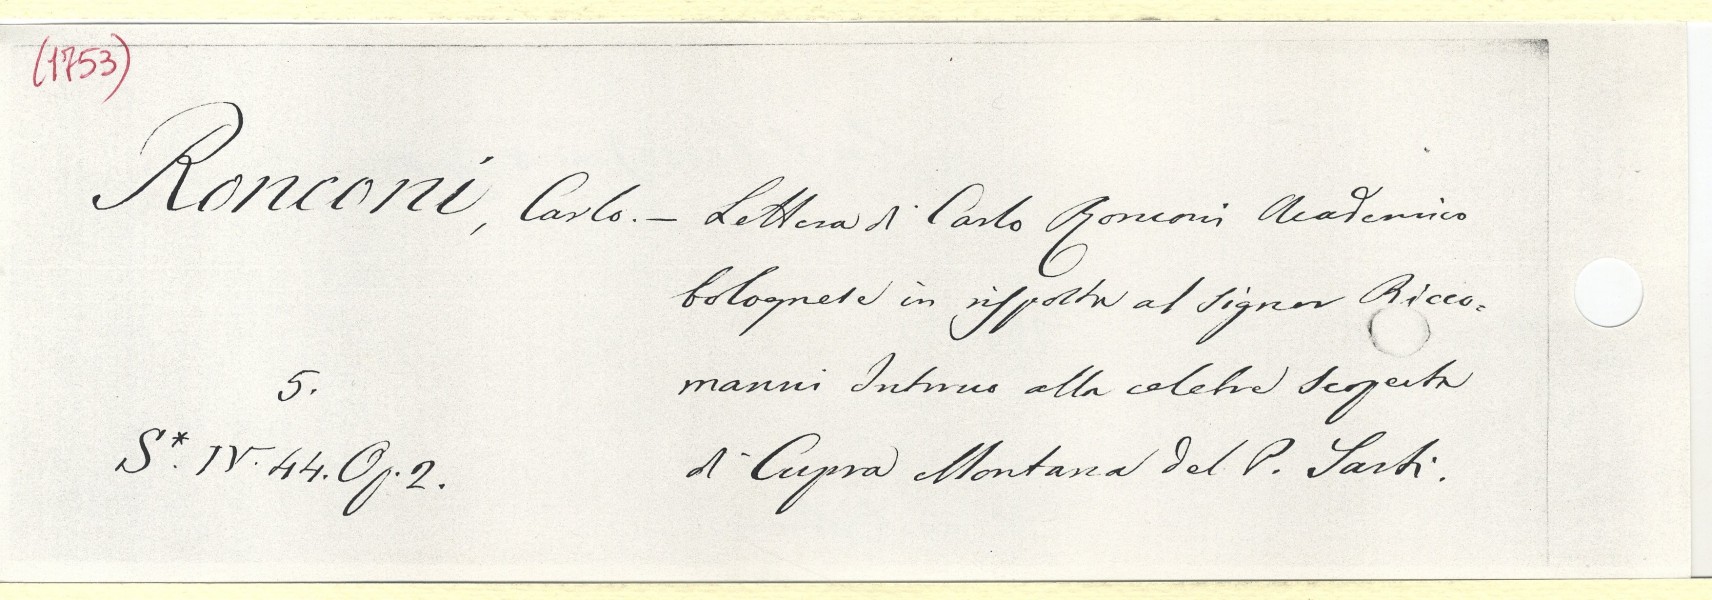 (1753)
Ronconi, Carlo. — Lettera di Carlo Ronconi Academico
bolognese in risposta al signor Ricco=
manni Intorno alla celebre scoperta
di Cupra Montana del P. Sarti.
5.
S*. IV. 44. Op. 2.